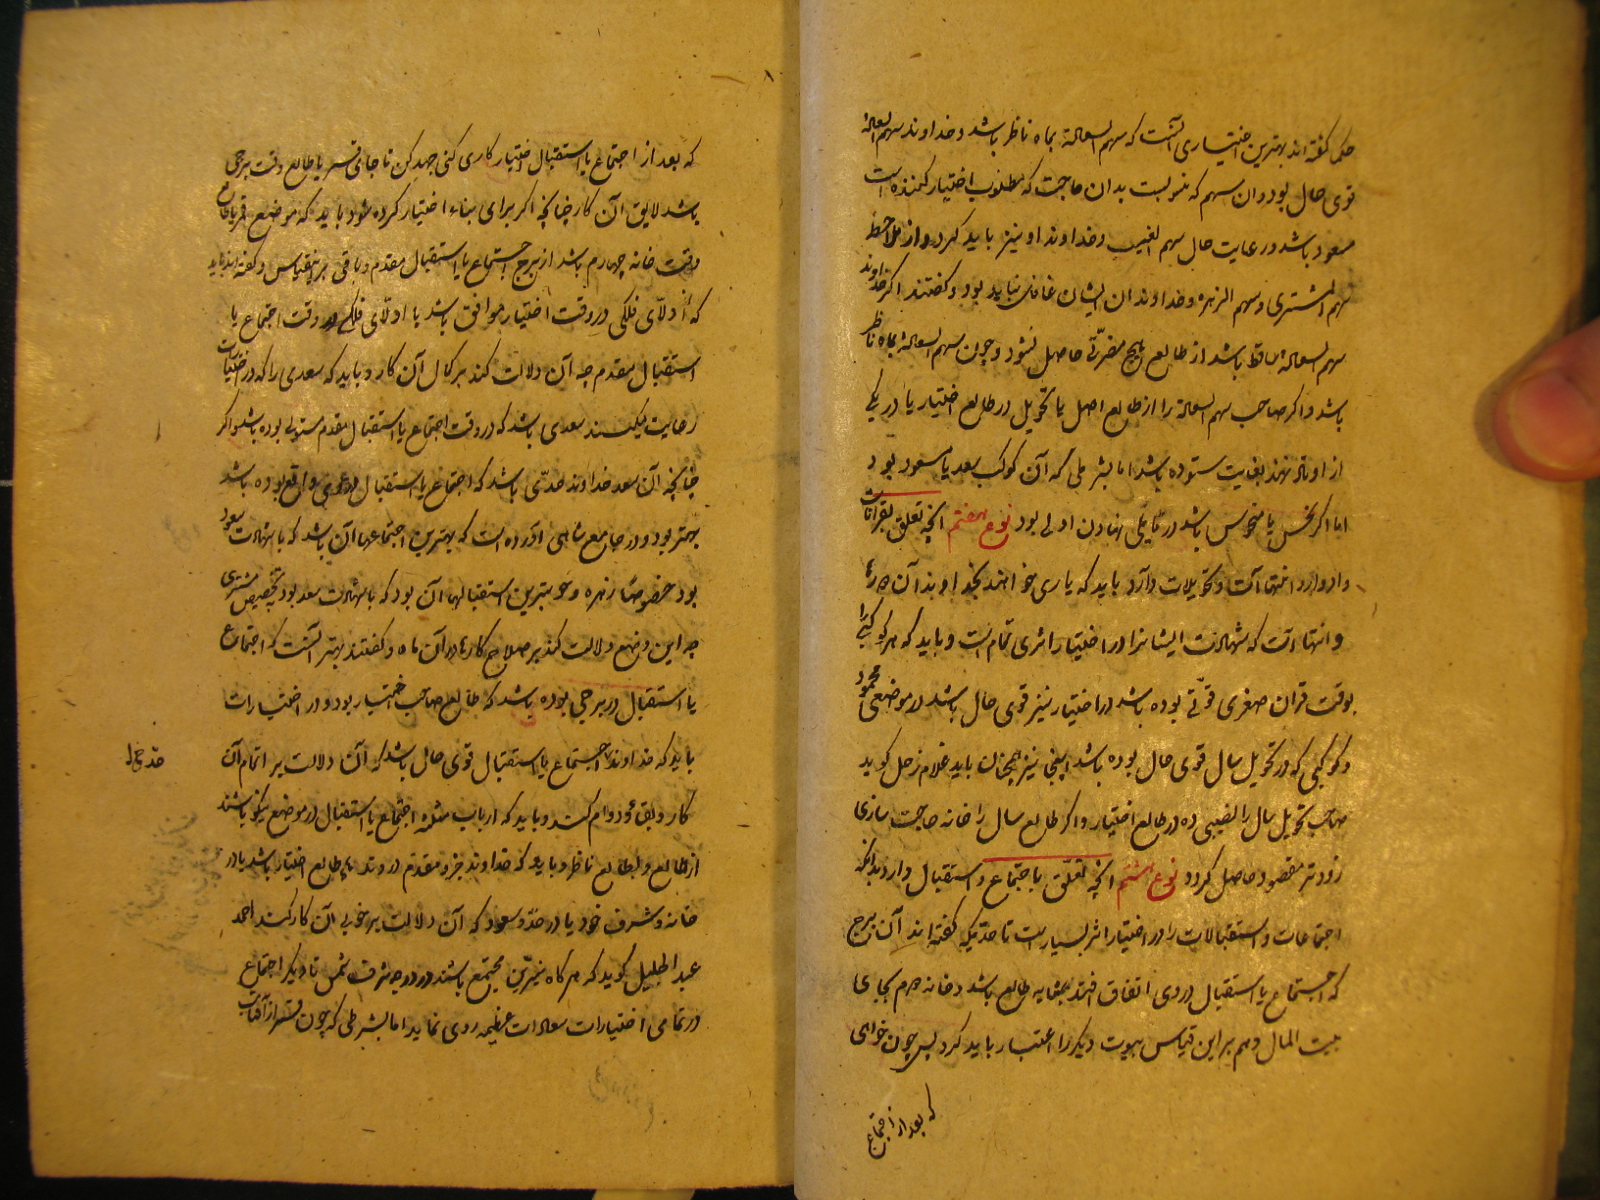 حکما گفته اند بهترین اختیاری آنست که سهم السعاده بماه ناظر باشد و خداوند سهم السعاده
قوی حال بود و ان سهم که منسوبست بدان حاجت که مطلوب اختیار کننده است
مسعود باشد و رعایت حال سهم الغیب و خداوند او نیز باید کرد و از ملاحظه
سهم المشتری و سهم الزهره و خداوندان ایشان غافل نباید بود و گفتند اگر خداوند
سهم السعاده ساقط باشد از طالع هیچ مضرّتی حاصل نشود و چون سهم السعاده بماه ناظر
باشد و اگر صاحب سهم السعاده را از طالع اصل یا تحویل در طالع اختیار یا در یکی
از اوتاد نهند بغایت ستوده باشد اما بشرطی که آن کوکب سعد یا مسعود بود
اما اگر نحس یا منحوس باشد در مایلی نهادن اولی بود نوع هفتم آنچه تعلق بقرانات
و ادوار و انتهاآت و تحویلات دارد باید که یاری خواهند بخداوند آن
و انتهاآت که شهادت ایشانرا در اختیار اثری تمام است و باید که هر کوکبی را
بوقت قران صغری قوّتی بوده باشد در اختیار نیز قوی حال باشد در موضعی محمود
و کوکبی که در تحویل سال قوی حال بوده باشد اینجا نیز همچنان باید غلام زحل گوید
صاحب تحویل سال را نصیبی ده در طالع اختیار و اگر طالع سال را خانه حاجت سازی
زودتر مقصود حاصل گردد نوع هشتم آنچه تعلق باجتماع و استقبال دارد بدانکه
اجتماعات و استقبالات را در اختیار اثر بسیار است تا حدّیکه گفته اند آن برج
که اجتماع یا استقبال در وی اتفاق افتد بمثابه طالع باشد و خانه دوم بجای
بیت المال و هم براین قیاس بیوت دیگر را اعتبار باید کرد پس چون خواهی
که بعد از اجتماع
که بعد از اجتماع یا استقبال اختیار کاری کنی جهد کن تا جای قمر یا طالع وقت برجی
باشد لایق آن کار چنانچه اگر برای بناء اختیار کرده شود باید که موضع قمر یا طالع
وقت خانه چهارم باشد از برج اجتماع یا استقبال مقدم و باقی برینقیاس و گفته اند باید
که ادلّای فلکی در وقت اختیار موافق باشد با ادلّای فلکی در وقت اجتماع یا
استقبال مقدم چه آن دلالت کند بر کمال آن کار و باید که سعدی را که در اختیارات
رعایت میکنند سعدی باشد که در وقت اجتماع یا استقبال مقدم مستولی بوده باشد و اگر
چنانچه آن سعد خداوند حدّی باشد که اجتماع یا استقبال در وی واقع بوده باشد
بهتر بود و در جامع شاهی آورده است که بهترین اجتماعها آن باشد که با شهادت سعود
بود خصوصاً زهره و بهترین استقبالها آن بود که با شهادت سعد بود بتخصیص مشتری
چه این وضع دلالت کند بر صلاح کارها در آن ماه و گفتند بهتر آنست که اجتماع
یا استقبال در برجی بوده باشد که طالع صاحب اختیار بود و در اختیارات
باید که خداوند اجتماع یا استقبال قوی حال باشد که آن دلالت بر اتمام آن
کار و بقا و دوام کند و باید که ارباب مثلثه اجتماع یا استقبال در موضع نیکو باشند
از طالع و بطالع ناظر و باید که خداوند جزو مقدم در وتد طالع اختیار باشد یا در
خانه و شرف خود یا در حدّ سعود که آن دلالت بر خوبی آن کار کند احمد
عبد الجلیل گوید که هرگاه نیّرین مجتمع باشند در درجه شرف شمس تا دیگر اجتماع
در تمامی اختیارات سعادات عظیمه روی نماید اما بشرطی که چون قمر از آفتاب